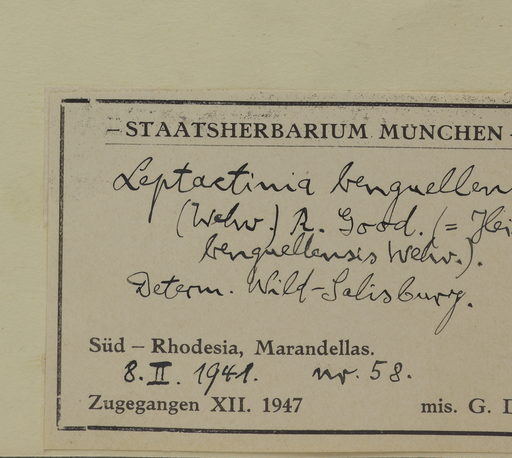 – STAATSHERBARIUM MÜNCHEN -
Leptactinia benguellen
(Welw.) R. Good. (= Hei
benguellensis Welw.).
Determ. Wild-Salisbury.
Süd – Rhodesia, Marandellas.
8. II. 1941. nr. 58.
Zugegangen XII. 1947 mis. G. D